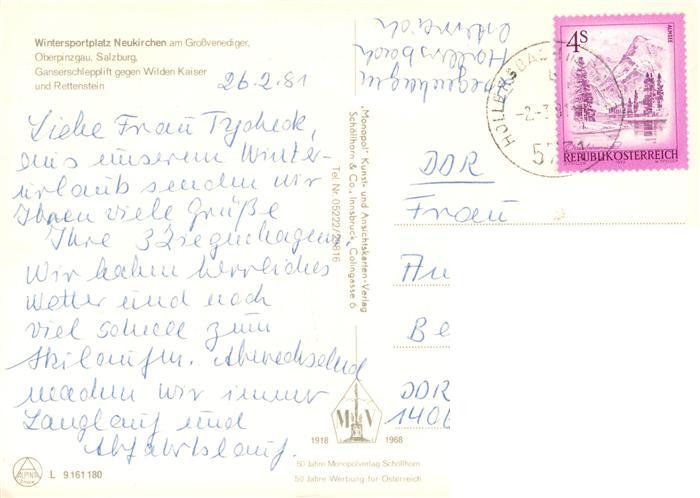 Wintersportplatz Neukirchen am Großvenediger,
Oberpinzgau, Salzburg,
Ganserschlepplift gegen Wilden Kaiser
und Rettenstein
26.2.81
Liebe Frau
aus unserem Winter-
urlaub senden wir
Ihnen viele Grüße
Ihre 3 Ziegenhagens,
Wir haben herrliches
Wetter und noch
viel Schnee zum
Skilaufen. Abwechselnd
machen wir immer
Langlauf und
Abfahrtslauf.
Ziegenhagen
Hollersbach
Österreich
"Monopol" Kunst- und Ansichtskarten-Verlag
Schöllhorn & Co., Innsbruck, Colingasse 6
Tel. Nr. 05222/
4S
ALMSEE
REPUBLIK ÖSTERREICH
DDR
Frau
An
Be
DDR
140
M V
1918 1968
50 Jahre Monopolverlag Schöllhorn
50 Jahre Werbung für Österreich
ALPINA
L 9161180